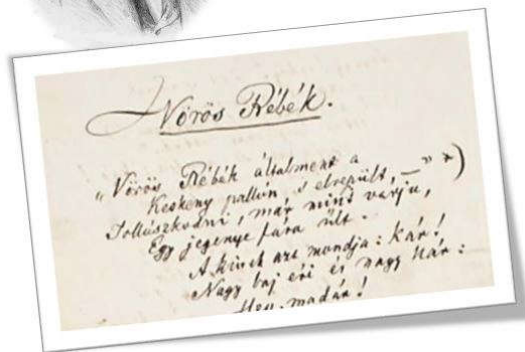 Vörös Rébék.
„Vörös Rébék általment a
Keskeny pallón, s elrepült, —" *)
Tollászkodni, már mint varju,
Egy jegenye fára ült.
A kinek azt mondja: kár!
Nagy baj éri és nagy kár:
Hess, madár!